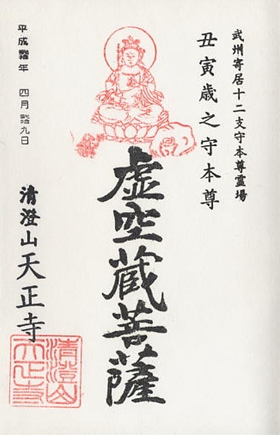 武州寄居十二支守本尊霊場
丑寅歳之守本尊
虚空蔵菩薩
平成年 四月九日
清澄山天正寺
清澄山
天正寺